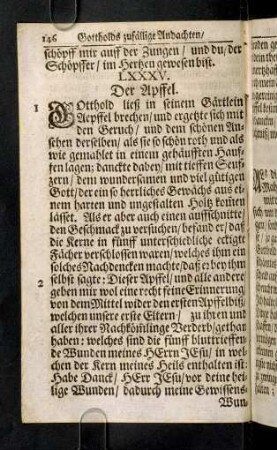 146 Gottholds zufällige Andachten/
schöpff mir auff der Zungen / und du / der
Schöpffer / im Hertzen gewesen bist.
LXXXV.
Der Apffel.
1 GOtthold ließ in seinem Gärtlein
Aepffel brechen / und ergetzte sich mit
den Geruch / und dem schönen An-
sehen derselben / als sie so schön roth und als
wie gemahlet in einem gehäufften Hauf-
fen lagen; danckte daben / mit tieffen Seuff-
zen / dem wundersamen und viel gütigen
Gott / der ein so herrliches Gewächs aus ei-
nem harten und ungestalten Holtz kommen
lässet. Als er aber auch einen auffschnitte /
den Geschmack zu versuchen / befand er / daß
die Kerne in fünff unterschiedliche eckigte
Fächer verschlossen waren / welches ihm ein
solches Nachdencken machte / daß er bey ihm
selbst sagte: Dieser Apffel / und alle andere
2 geben mir wol eine recht feine Erinnerung
von dem Mittel wider den ersten Apffelbiß /
welchen unsere erste Eltern / zu ihren und
aller ihrer Nachkömlinge Verderb / gethan
haben: welches sind die fünff bluttrieffen-
de Wunden meines HErrn JEsu / in wel-
chen der Kern meines Heils enthalten ist:
Habe Danck / HErr JEsu / vor deine hei-
lige Wunden / dadurch meine Gewissens-
Wun-